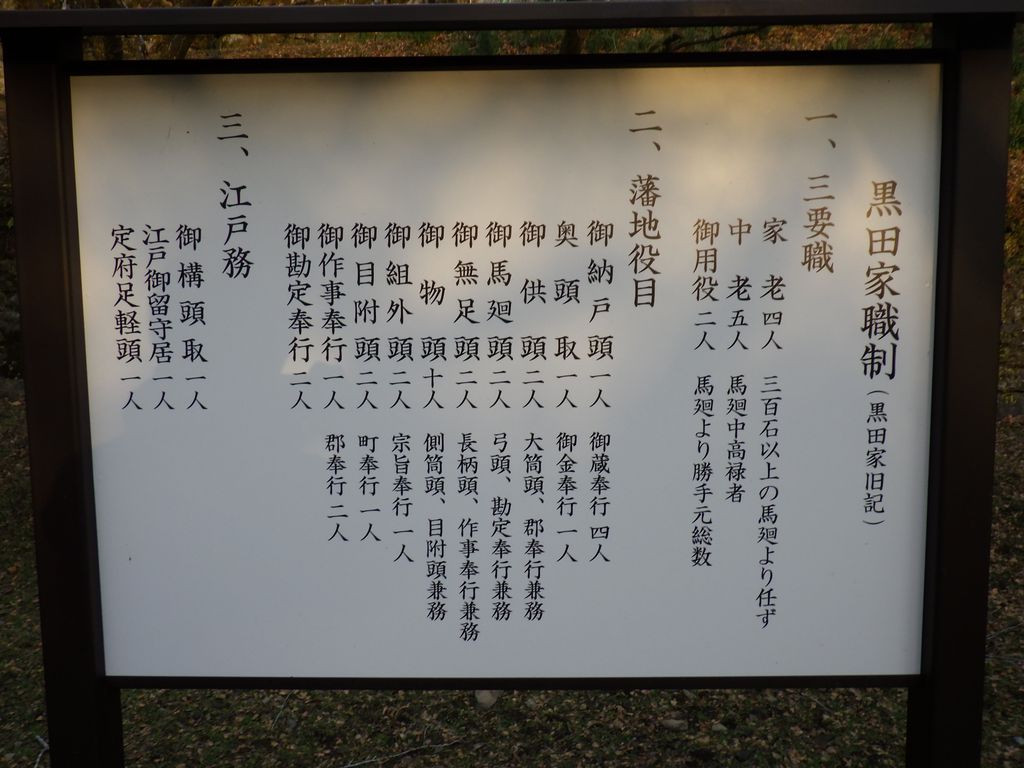 黒田家職制（黒田家旧記）
一、三要職
家老四人 三百石以上の馬廻より任ず
中老五人 馬廻中高禄者
御用役二人 馬廻より勝手元総数
二、藩地役目
御納戸頭一人 御蔵奉行四人
奥頭取一人 御金奉行一人
御供頭二人 大筒頭、郡奉行兼務
御馬廻頭二人 弓頭、勘定奉行兼務
御無足頭二人 長柄頭、作事奉行兼務
御物頭十人 側筒頭、目附頭兼務
御組外頭二人 宗旨奉行一人
御目附頭二人 町奉行一人
御作事奉行一人 郡奉行二人
御勘定奉行二人
三、江戸務
御構頭取一人
江戸御留守居一人
定府足軽頭一人